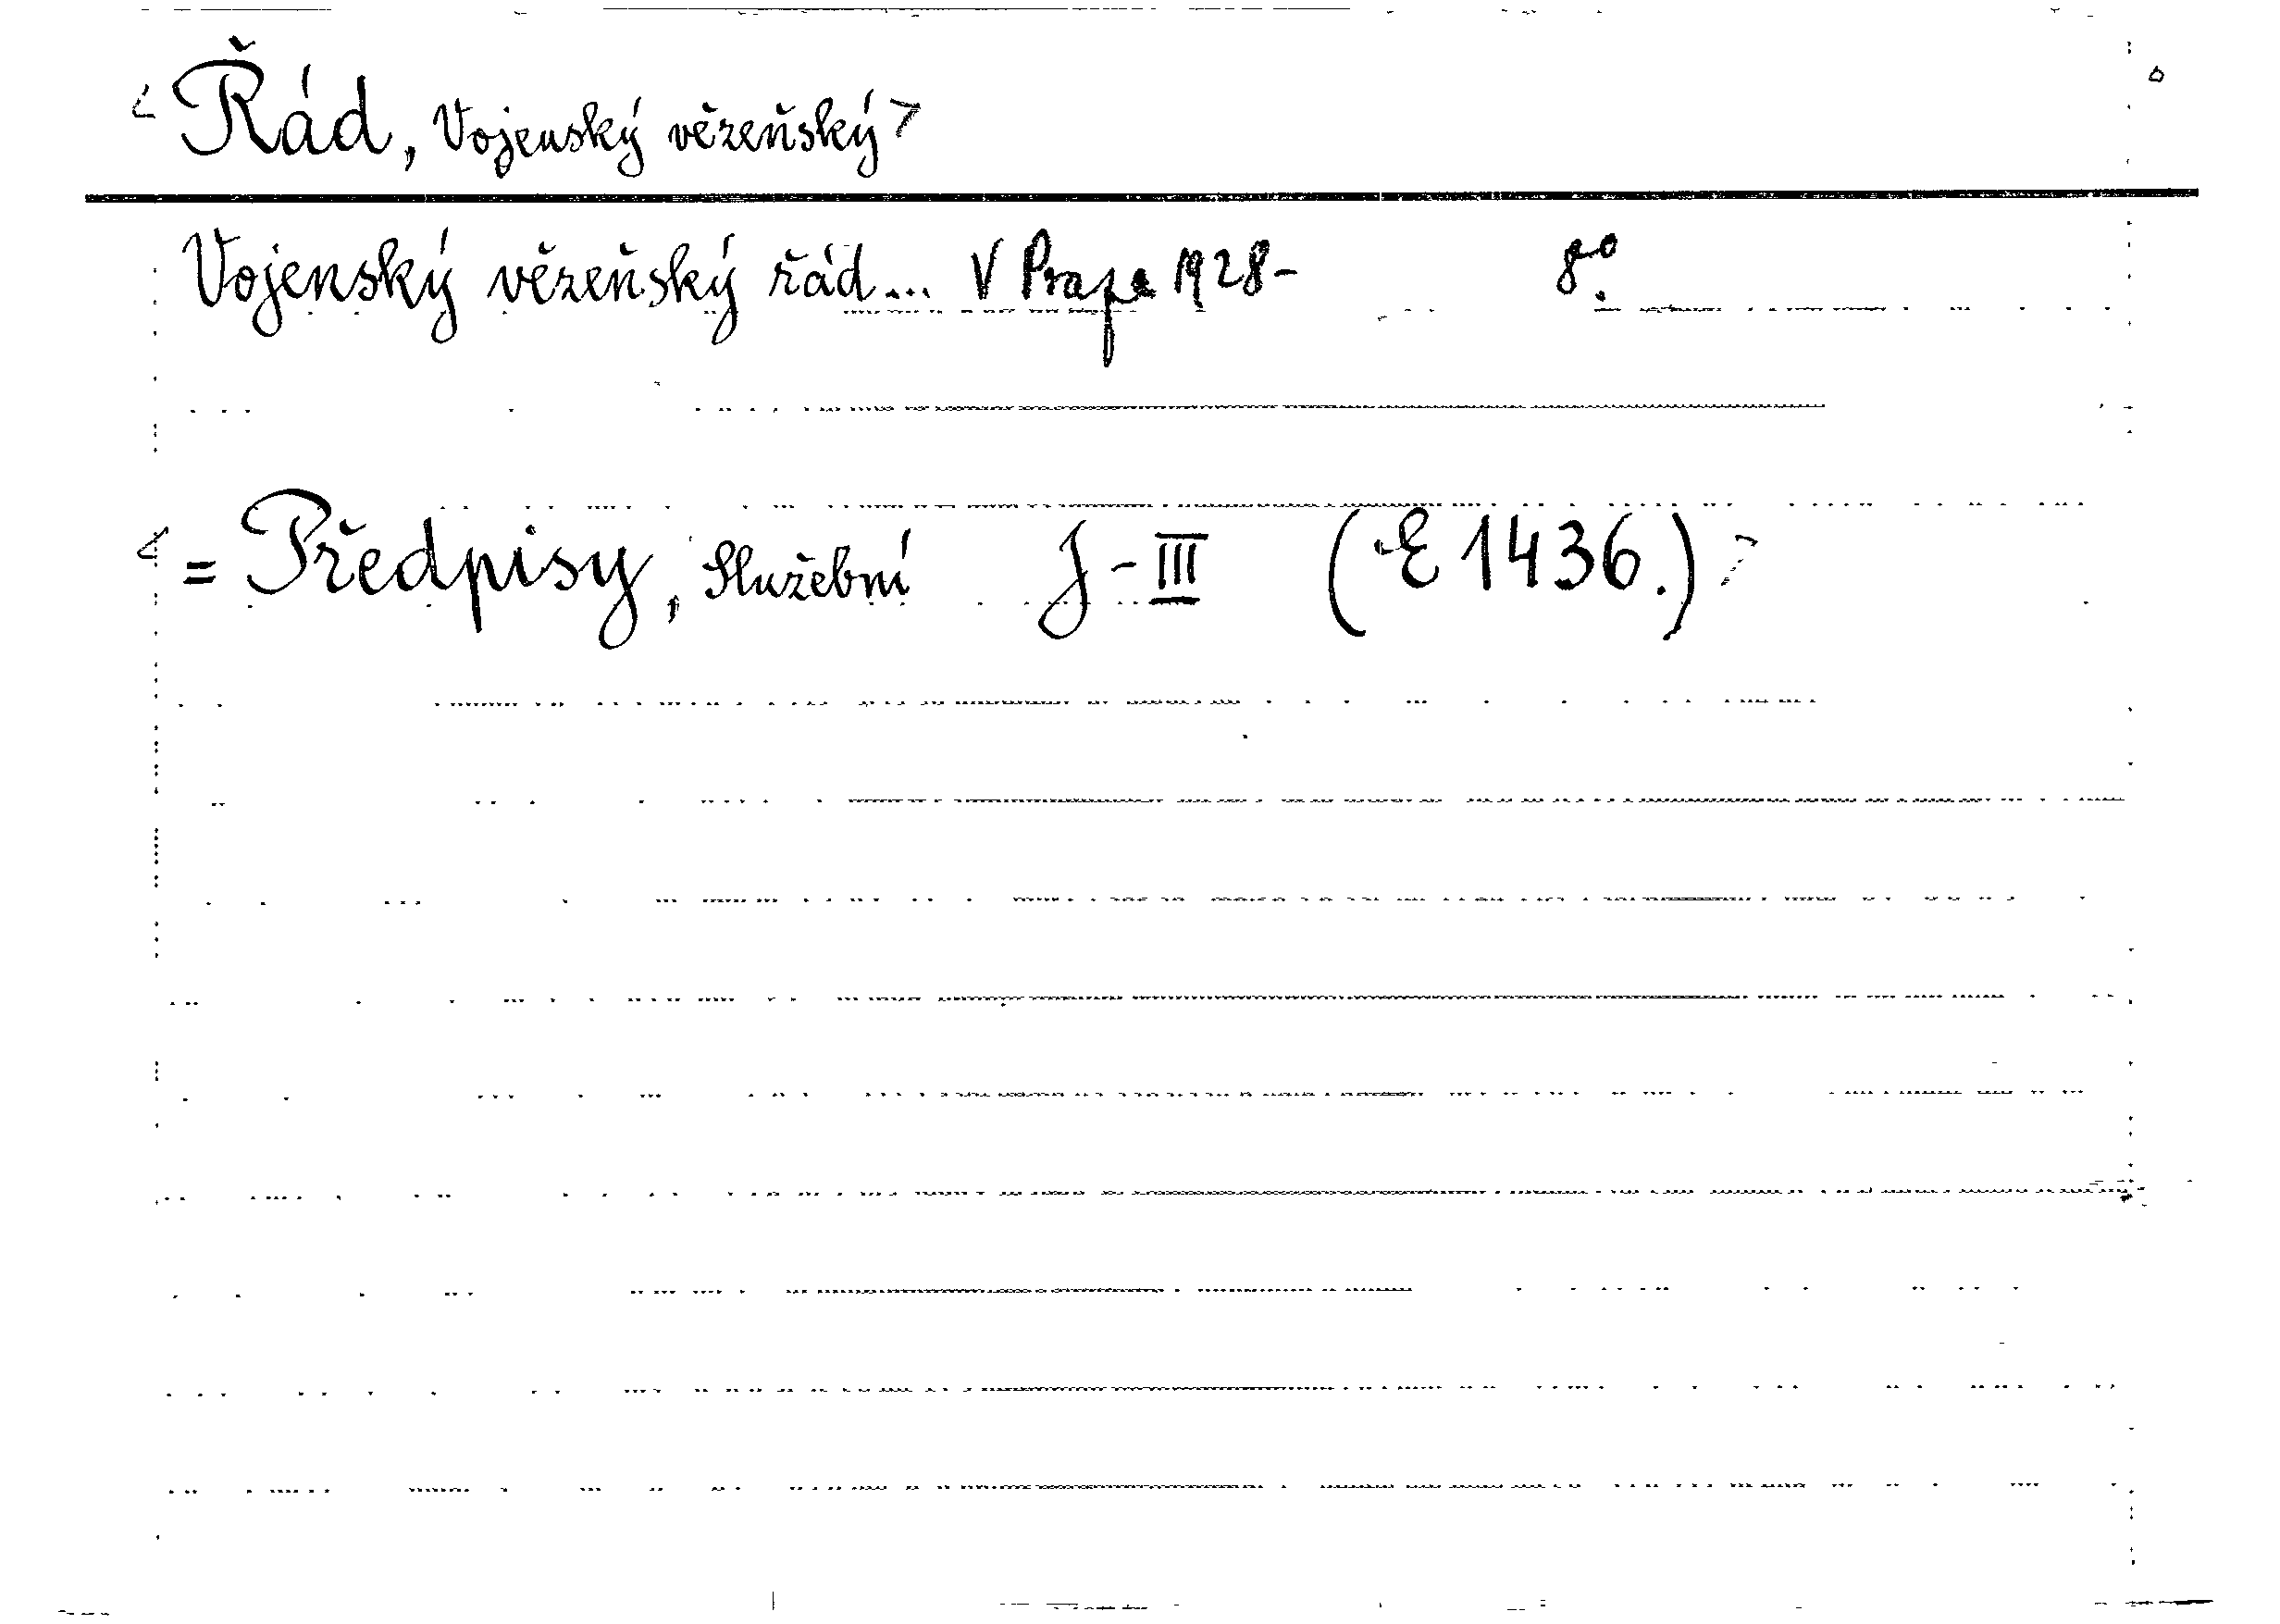 <Řád, Vojenský vězeňský>
Vojenský vězeňský řád... V Praze 1928- 8°.
<= Předpisy, Služební J-III (E 1436.)>